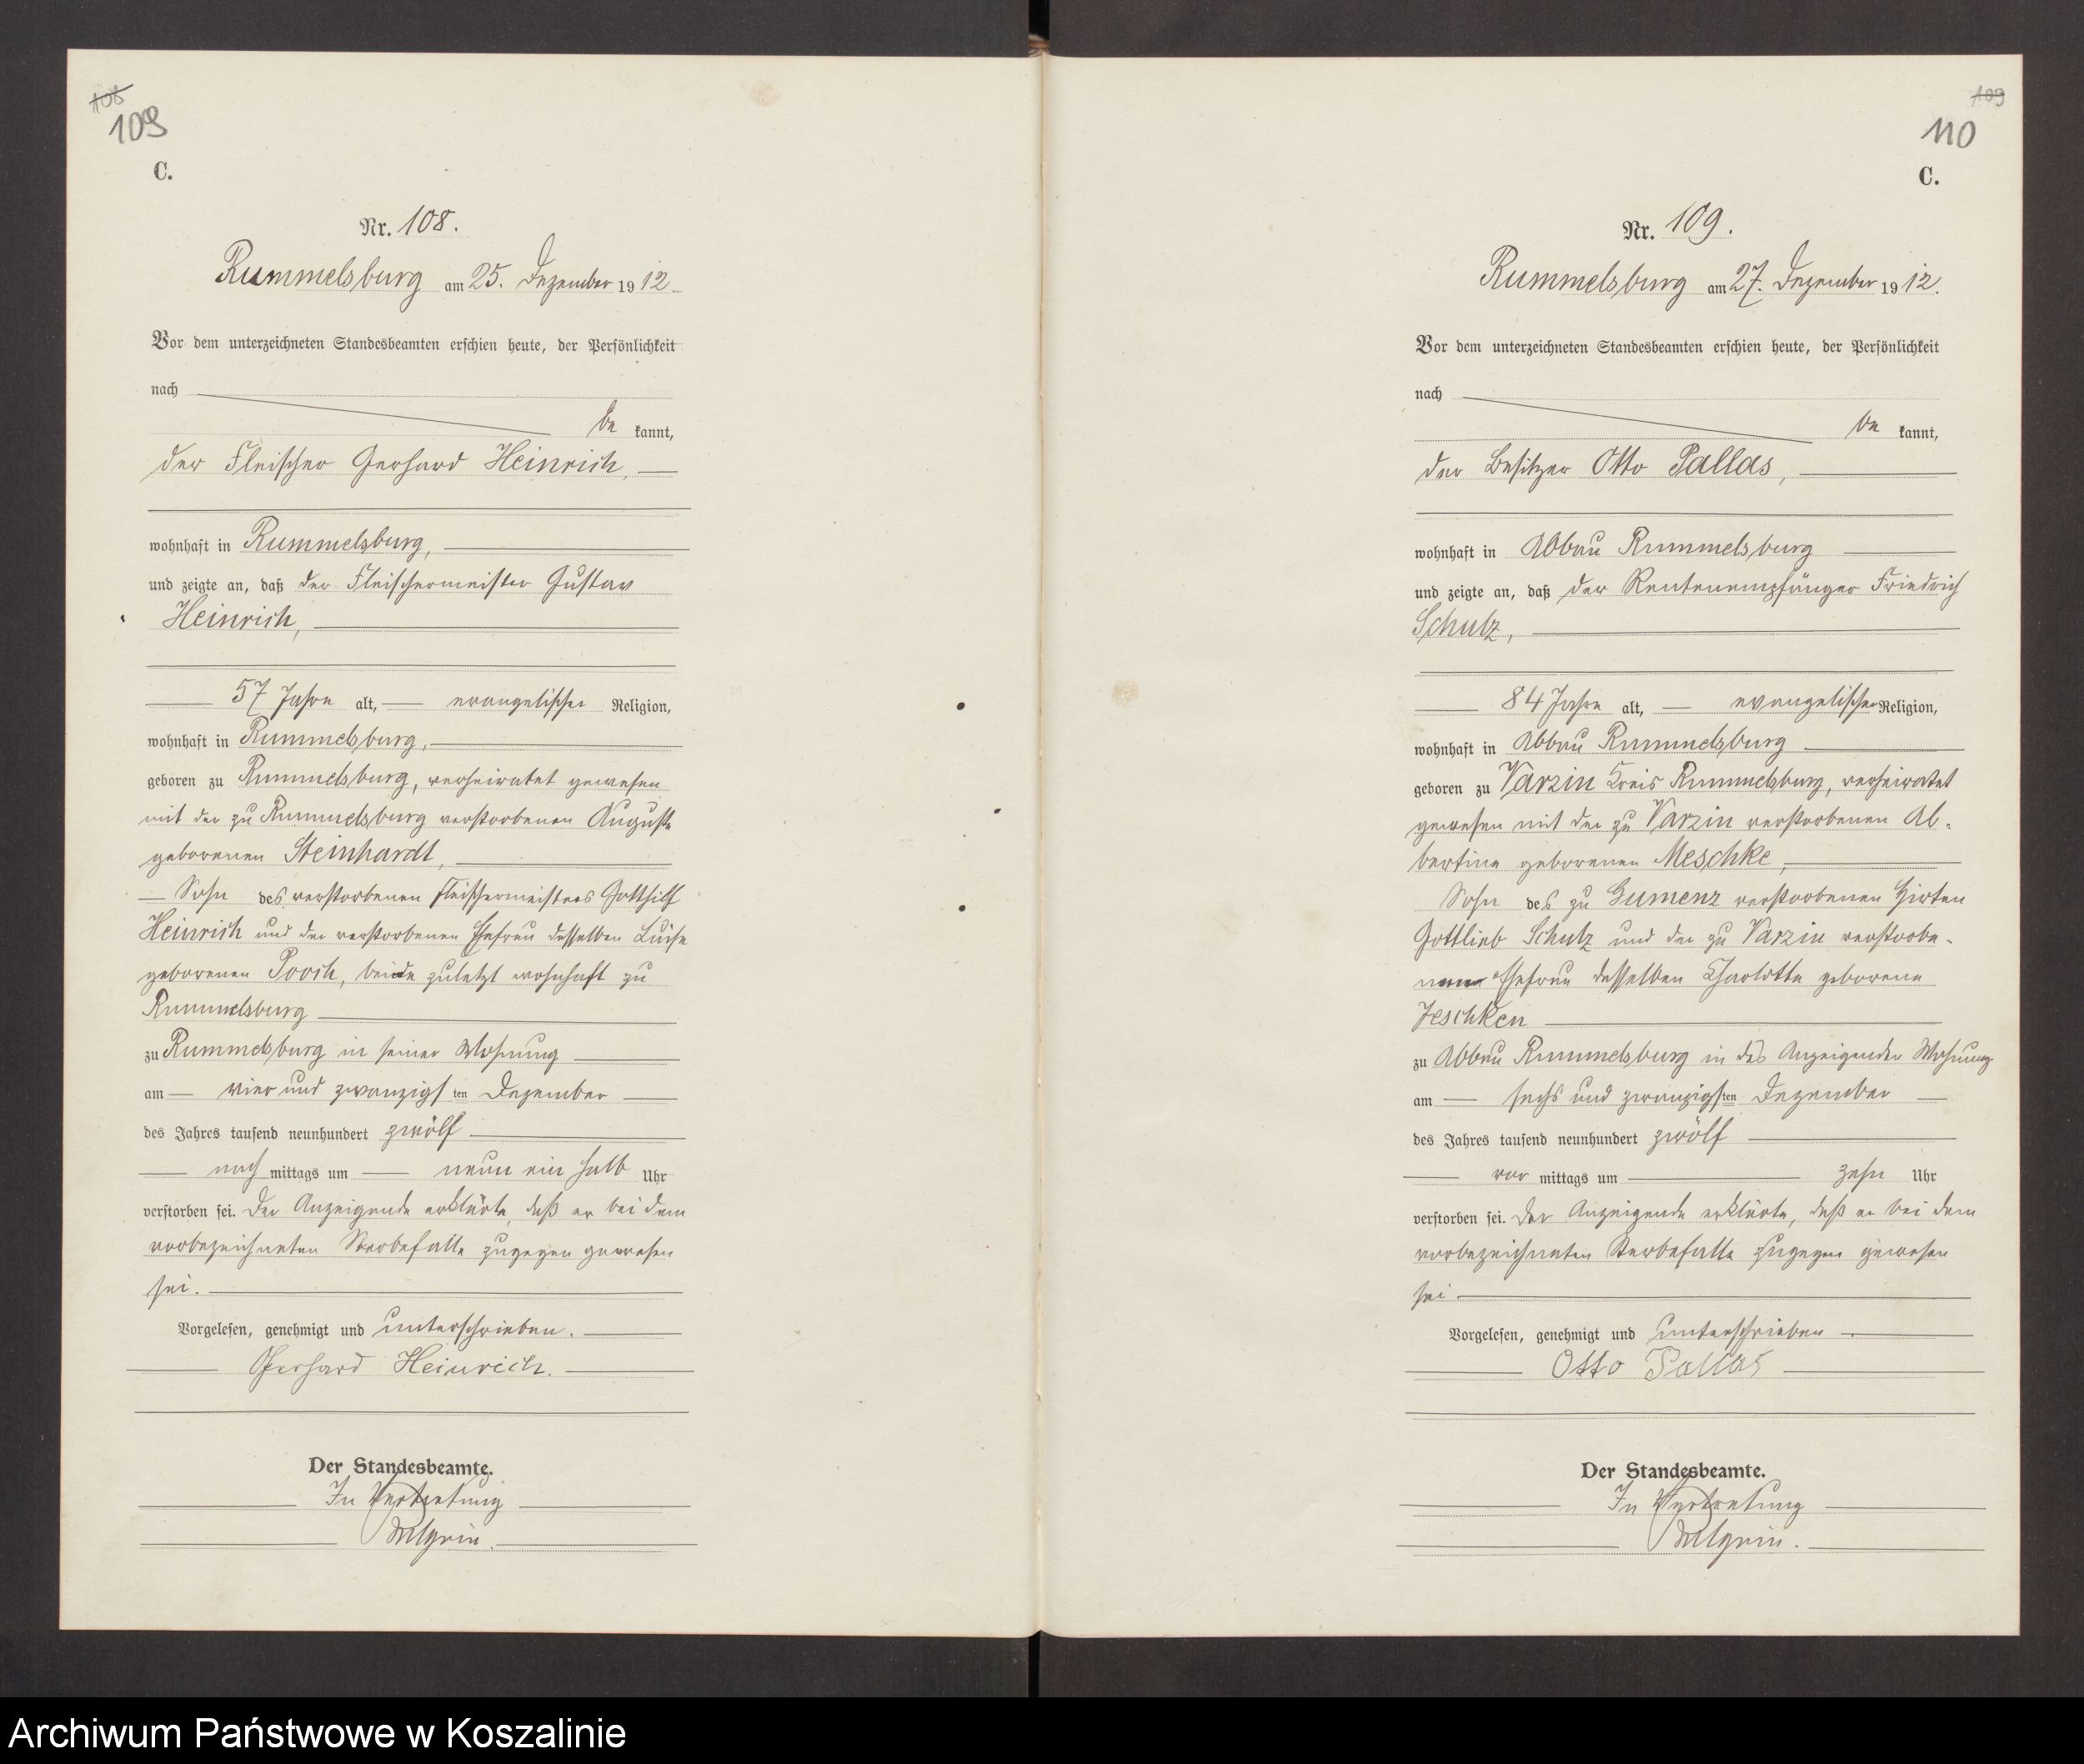 108
109
C.
Nr. 108.
Rummelsburg am 25. Dezember 1912.
Vor dem unterzeichneten Standesbeamten erschien heute, der Persönlichkeit
nach
be kannt,
der Fleischer Gerhard Heinrich,
wohnhaft in Rummelsburg,
und zeigte an, daß der Fleischermeister Gustav
Heinrich,
57 Jahre alt, evangelischer Religion,
wohnhaft in Rummelsburg,
geboren zu Rummelsburg, verheiratet gewesen
mit der zu Rummelsburg verstorbenen Auguste
geborenen Steinhardt,
Sohn des verstorbenen Fleischermeisters Gotthilf
Heinrich und der verstorbenen Ehefrau desselben Luise
geborenen Pooch, beide zuletzt wohnhaft zu
Rummelsburg
zu Rummelsburg in seiner Wohnung
am vier und zwanzigsten Dezember
des Jahres tausend neunhundert zwölf
nach mittags um neun ein halb Uhr
verstorben sei. Der Anzeigende erklärte, daß er bei dem
vorbezeichneten Sterbefalle zugegen gewesen
sei.
Vorgelesen, genehmigt und unterschrieben.
Gerhard Heinrich.
Der Standesbeamte.
In Vertretung
109
110
C.
Nr. 109.
Rummelsburg am 27. Dezember 1912.
Vor dem unterzeichneten Standesbeamten erschien heute, der Persönlichkeit
nach
be kannt,
der Besitzer Otto Pallas,
wohnhaft in Abbau Rummelsburg
und zeigte an, daß der Rentenempfänger Friedrich
Schulz,
84 Jahre alt, evangelischer Religion,
wohnhaft in Abbau Rummelsburg
geboren zu Varzin Kreis Rummelsburg, verheiratet
gewesen mit der zu Varzin verstorbenen Al-
bertine geborenen Meschke,
Sohn des zu Gumenz verstorbenen Hirten
Gottlieb Schulz und der zu Varzin verstorbe-
nen Ehefrau desselben Charlotte geborene
Jeschken
zu Abbau Rummelsburg in des Anzeigenden Wohnung
am sechs und zwanzigsten Dezember
des Jahres tausend neunhundert zwölf
vor mittags um zehn Uhr
verstorben sei. Der Anzeigende erklärte, daß er bei dem
vorbezeichneten Sterbefalle zugegen gewesen
sei
Vorgelesen, genehmigt und unterschrieben
Otto Pallas
Der Standesbeamte.
In Vertretung
Archiwum Państwowe w Koszalinie